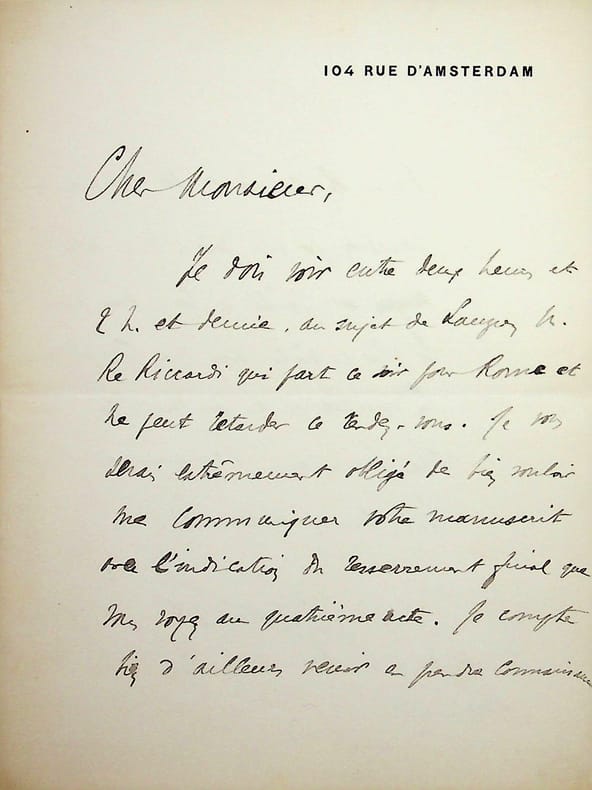 104 RUE D'AMSTERDAM
Cher Monsieur,
Je dois voir entre deux heures et
2 h. et demie, au sujet de M.
Re Riccardi qui part ce soir pour Rome et
ne peut retarder ce rendez-vous. Je vous
serais extrêmement obligé de bien vouloir
me communiquer votre manuscrit
avec l'indication du resserrement final que
vous voyez au quatrième acte. Je compte
bien d'ailleurs venir en prendre connaissance